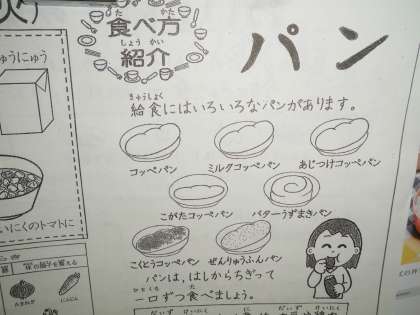 食べ方
紹介
しょうかい
パン
きゅうしょく
給食にはいろいろなパンがあります。
コッペパン
ミルクコッペパン
あじつけコッペパン
こがたコッペパン
バターうずまきパン
こくとうコッペパン
ぜんりゅうふんパン
パンは、はしからちぎって
一口ずつ食べましょう。
ゅうにゅう
いにくのトマトに
の調子を整える
たまねぎ
にんにく